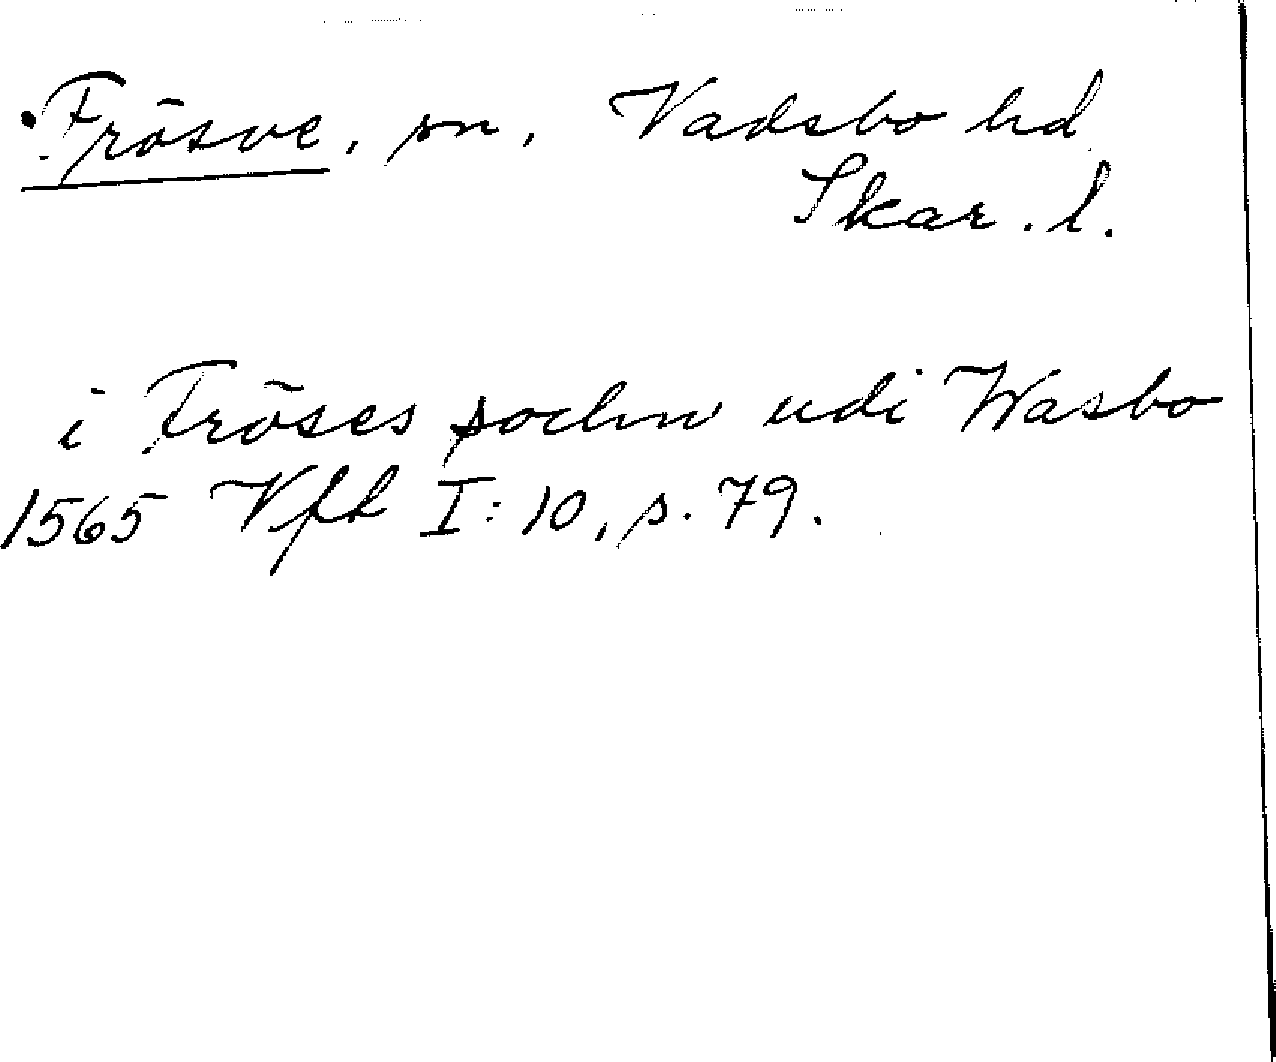 Frösve, sn, Vadsbo hd
Skar. l.
i Fröses sochn udi Wasbo
1565 Vfh I: 10, s. 79.